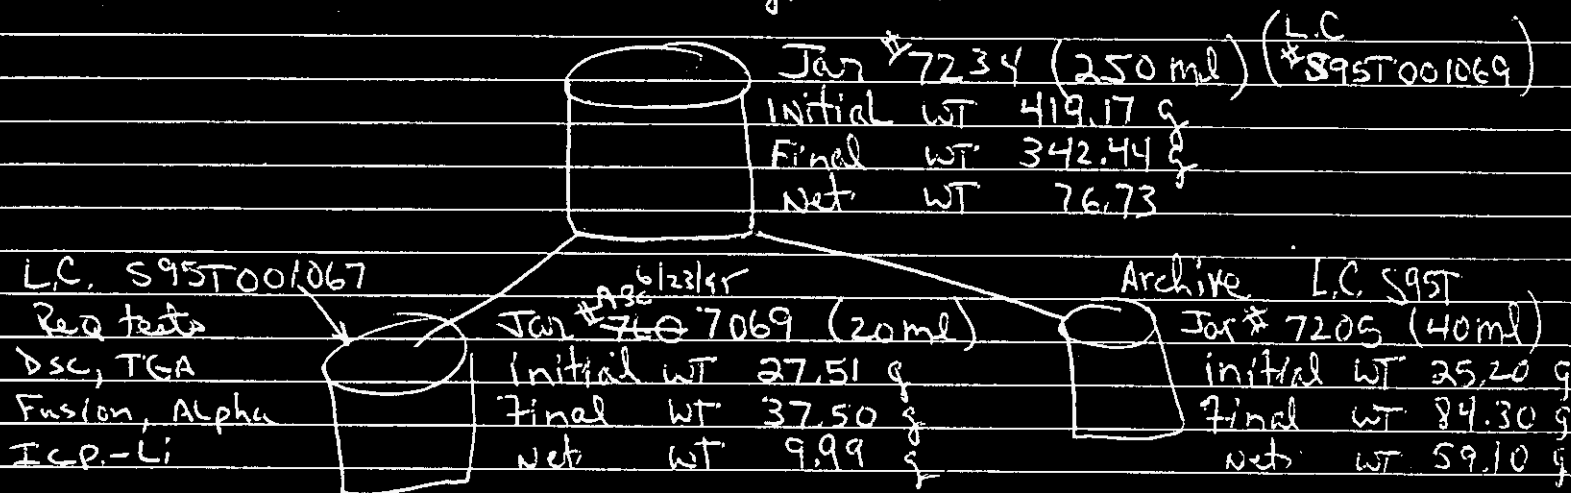 Jar #7234 (250 ml) (L.C #S95T001069)
Initial WT 419.17 g
Final WT 342.44 g
Net WT 76.73
L.C. S95T001067
Req tests
DSC, TGA
Fusion, Alpha
ICP.-Li
6/23/95
Jar # 7069 (20ml)
Initial WT 27.51 g
Final WT 37.50 g
Net WT 9.99 g
Archive L.C. S95T
Jar # 7205 (40ml)
initial WT 25.20 g
Final WT 84.30 g
Net WT 59.10 g